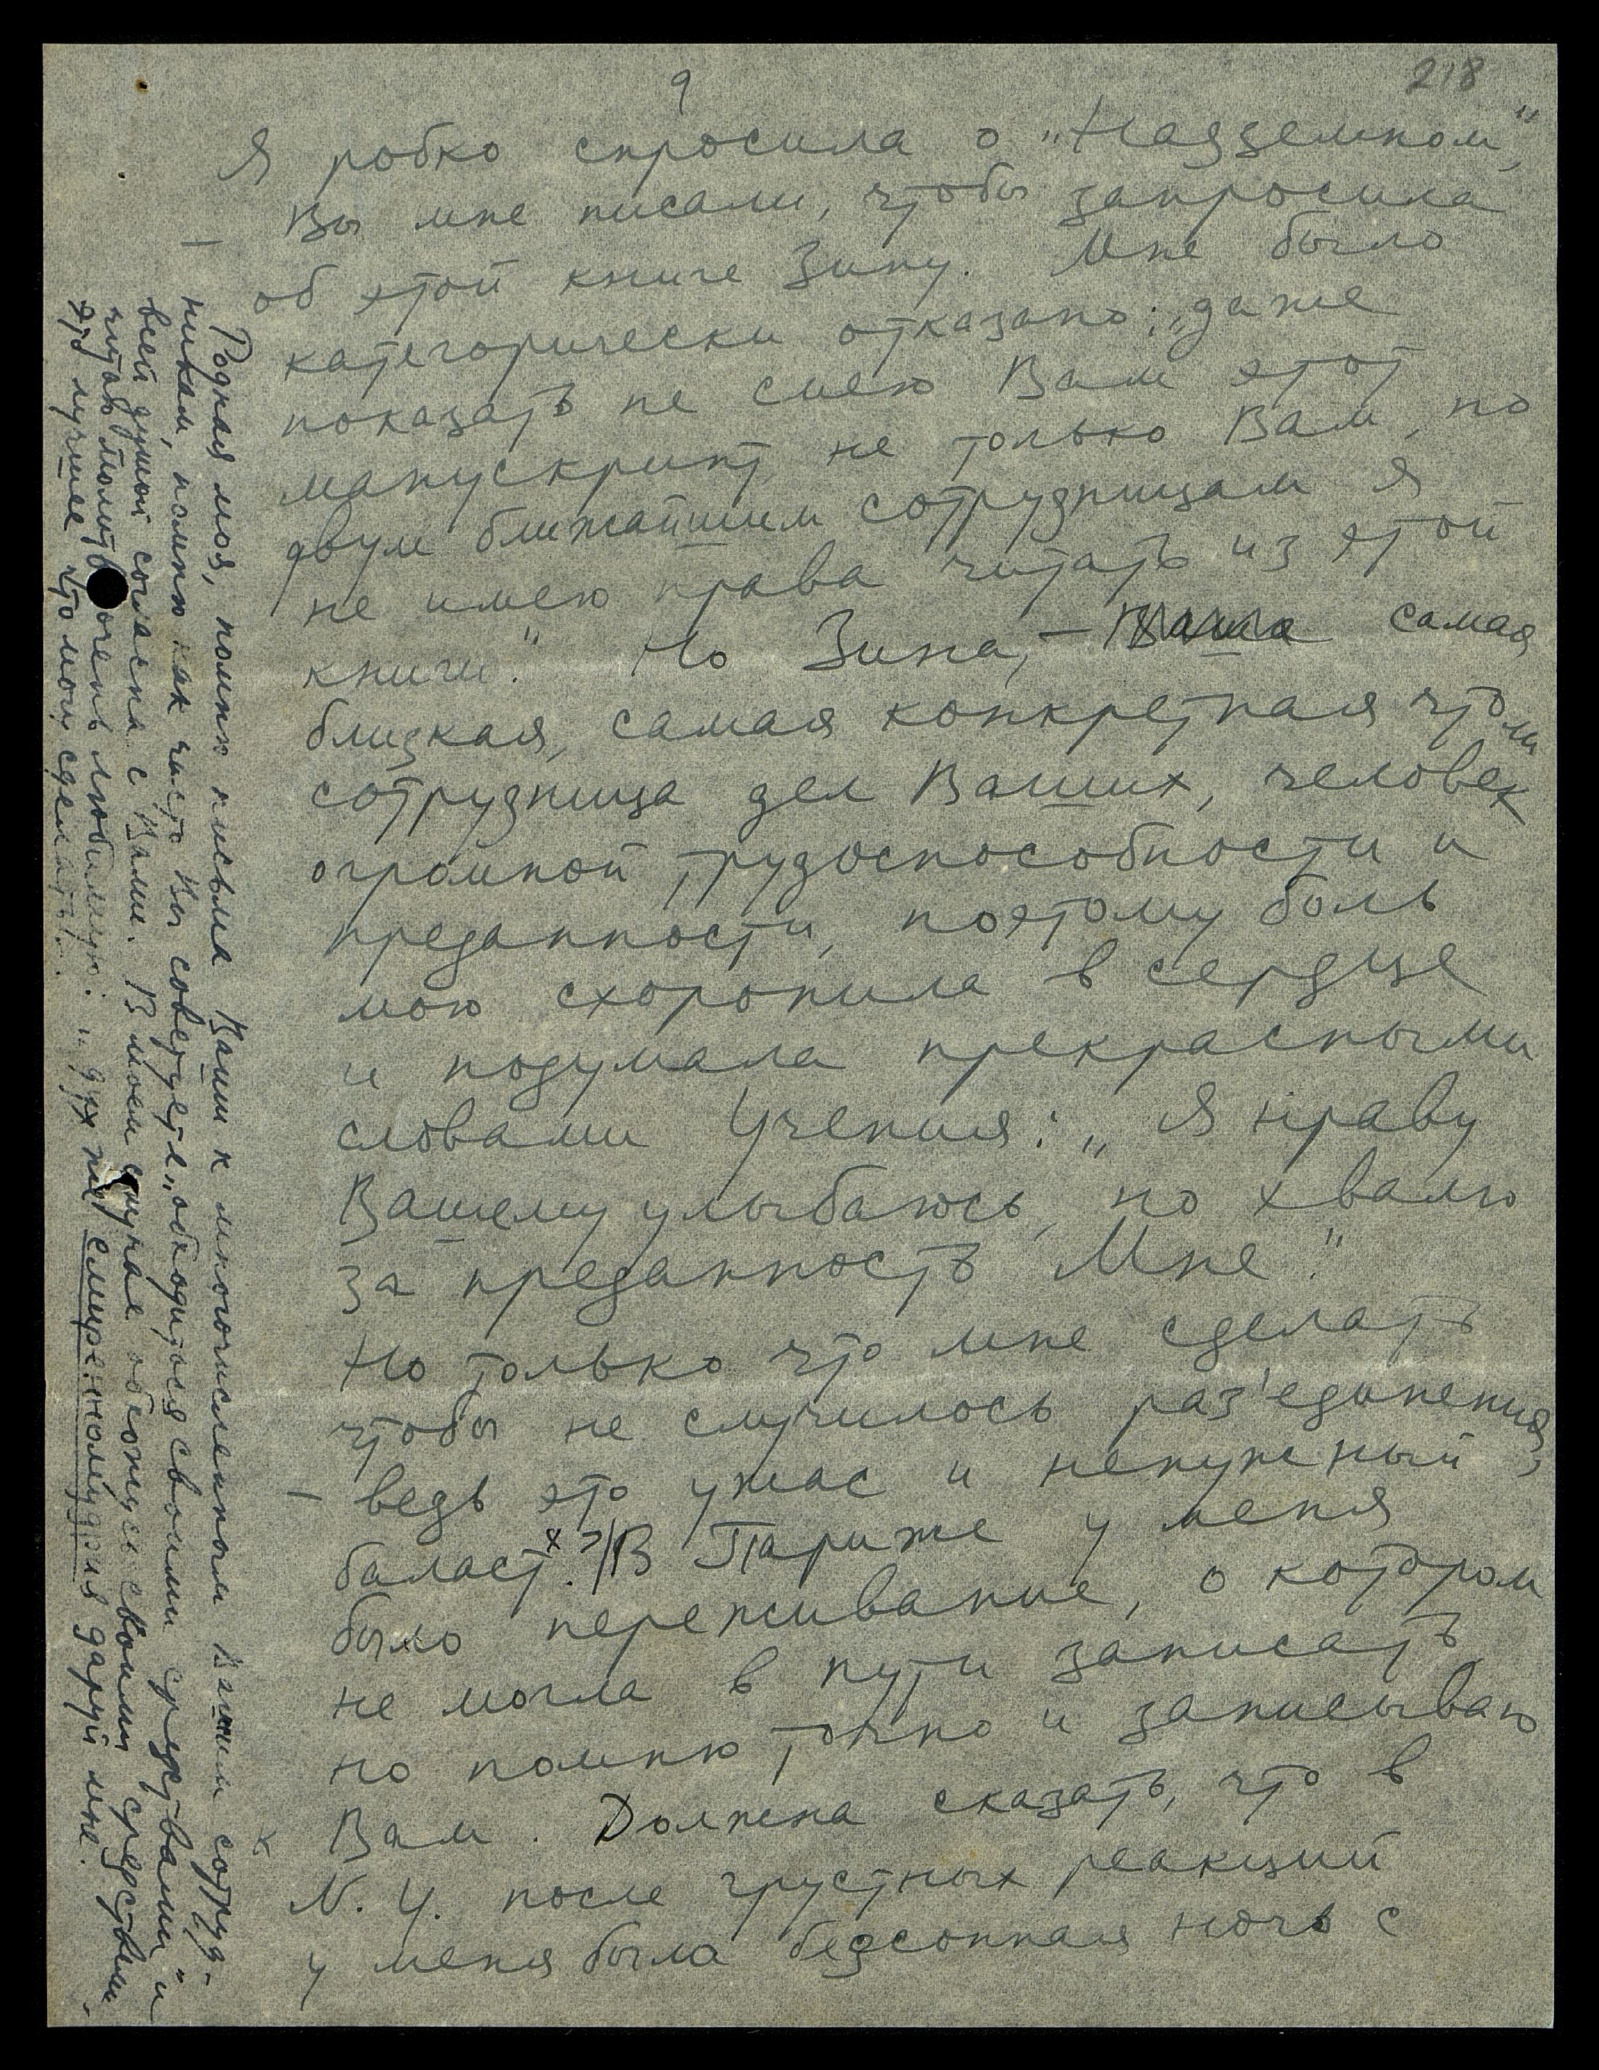 9
218
Я робко спросила о „Надземном“,
Вы мне писали, чтобы запросила
об этой книге Зину. Мне было
категорически отказано: „даже
показать не смею Вам этот
манускрипт, не только Вам, но
двум ближайшим сотрудницам я
не имею права читать из этой
книги.“ Но Зина, – Ваша самая
близкая, самая конкретная что ли
сотрудница дел Ваших, человек
огромной трудоспособности и
преданности, поэтому боль
мою схоронила в сердце
и подумала прекрасными
словами Учения: „Я нраву
Вашему улыбаюсь, но хвалю
за преданность Мне“.
Но только что мне сделать
чтобы не случилось раз'единения,
– ведь это ужас и ненужный
баласт.ˣ ?/В Париже у меня
было переживание, о котором
не могла в пути записать,
но помню точно и записываю
Вам. Должна сказать, что в
N. Y. после грустных реакций
у меня была безсонная ночь с
х Родная моя, помню письма Ваши к многочисленным Вашим сотруд-
никам, помню как часто Вы советуете „обходиться своими средствами“ и
всей душой согласна с Вами. В моем случае обхожусь своими средствами,
читая молитв очень любимую: „дух же смиренномудрия даруй мне.
это лучшее что могу сделать.